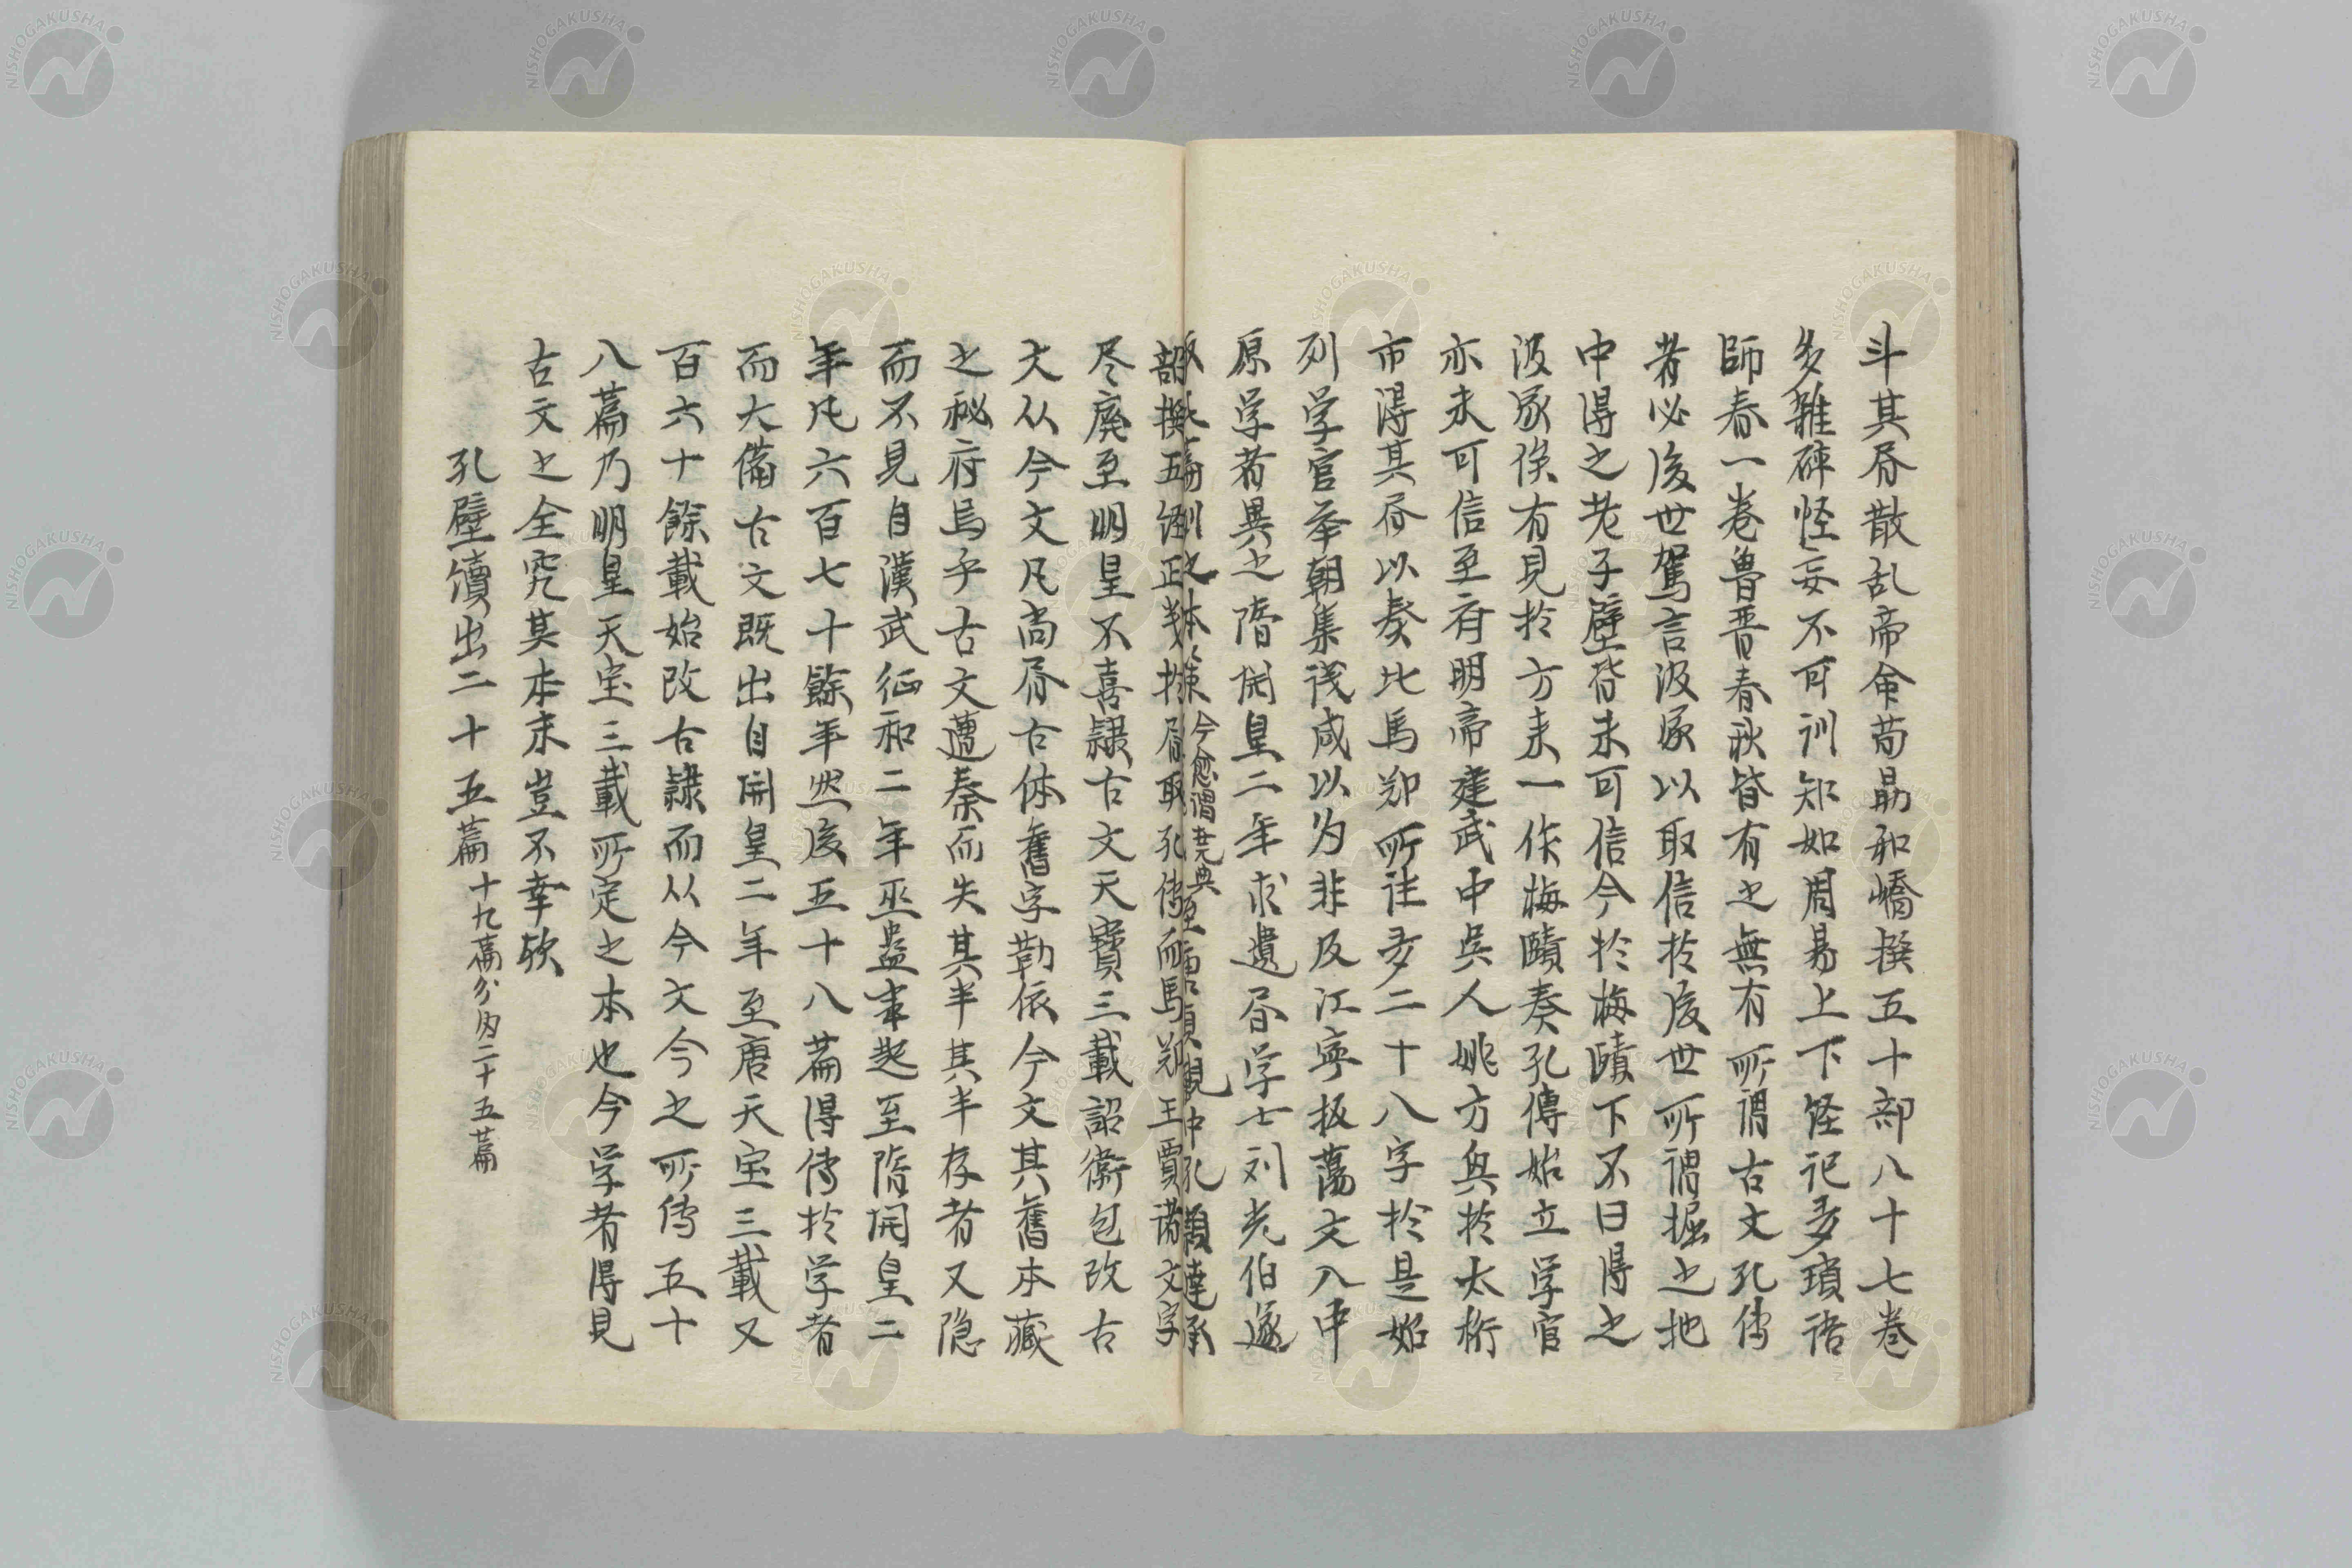 斗其昏散乱帝命荀勗和嶠撰五十部八十七卷
多雜碎怪妄不可訓知如周易上下怪祀多瑣语
師春一卷魯晋春秋皆有之無有所謂古文孔傳
者必後世駕言汲冢以取信於後世所謂掘之地
中得之老子壁皆未可信今於梅賾下不曰得之
汲冢俟有見於方来一作梅賾奏孔傳始立学官
亦未可信至府明帝建武中呉人姚方與於太桁
市得其昏以奏比馬郑所註多二十八字於是始
列学官举朝集议咸以为非及江寧板蕩文入中
原学者異之隋開皇二年求遺昏学士刘光伯遂
今愈謂堯典
詔撰五經正義 取孔傳而馬郑王賈諸文字
尽廃至明皇不喜隷古文天寳三載詔衛包改古
文从今文凡尚昏古体舊字勒依今文其舊本藏
之秘府烏乎古文遭秦而失其半其半存者又隐
而不見自漢武征和二年巫蛊事起至隋開皇二
年凡六百七十餘年然後五十八篇得传於学者
而大備古文既出自開皇二年至唐天宝三載又
百六十餘載始改古隷而从今文今之所传五十
八篇乃明皇天宝三載所定之本也今学者得見
古文之全究其本末豈不幸欤
孔壁續出二十五篇十九篇分为二十五篇